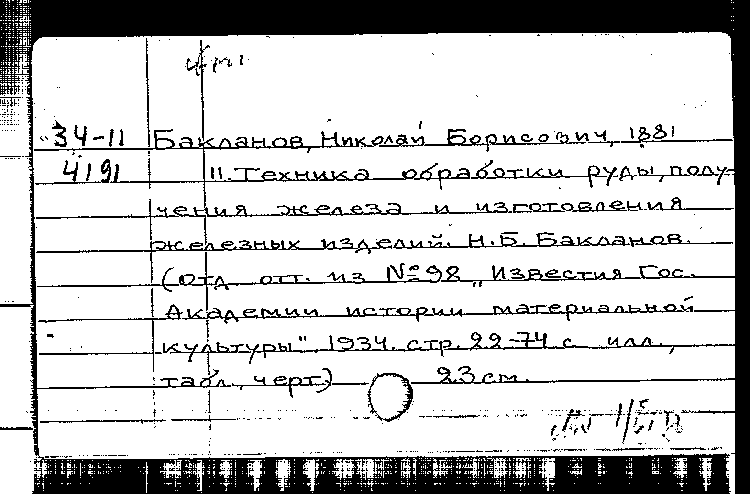 34-11 Бакланов, Николай Борисович, 1881
4191 11. Техника обработки руды, полу-
чения железа и изготовления
железных изделий. Н.Б. Бакланов.
(отд. отт. из № 98 „Известия Гос.
Академии истории материальной
культуры". 1934. стр. 22-74 с илл.,
табл., черт.) 23 см.